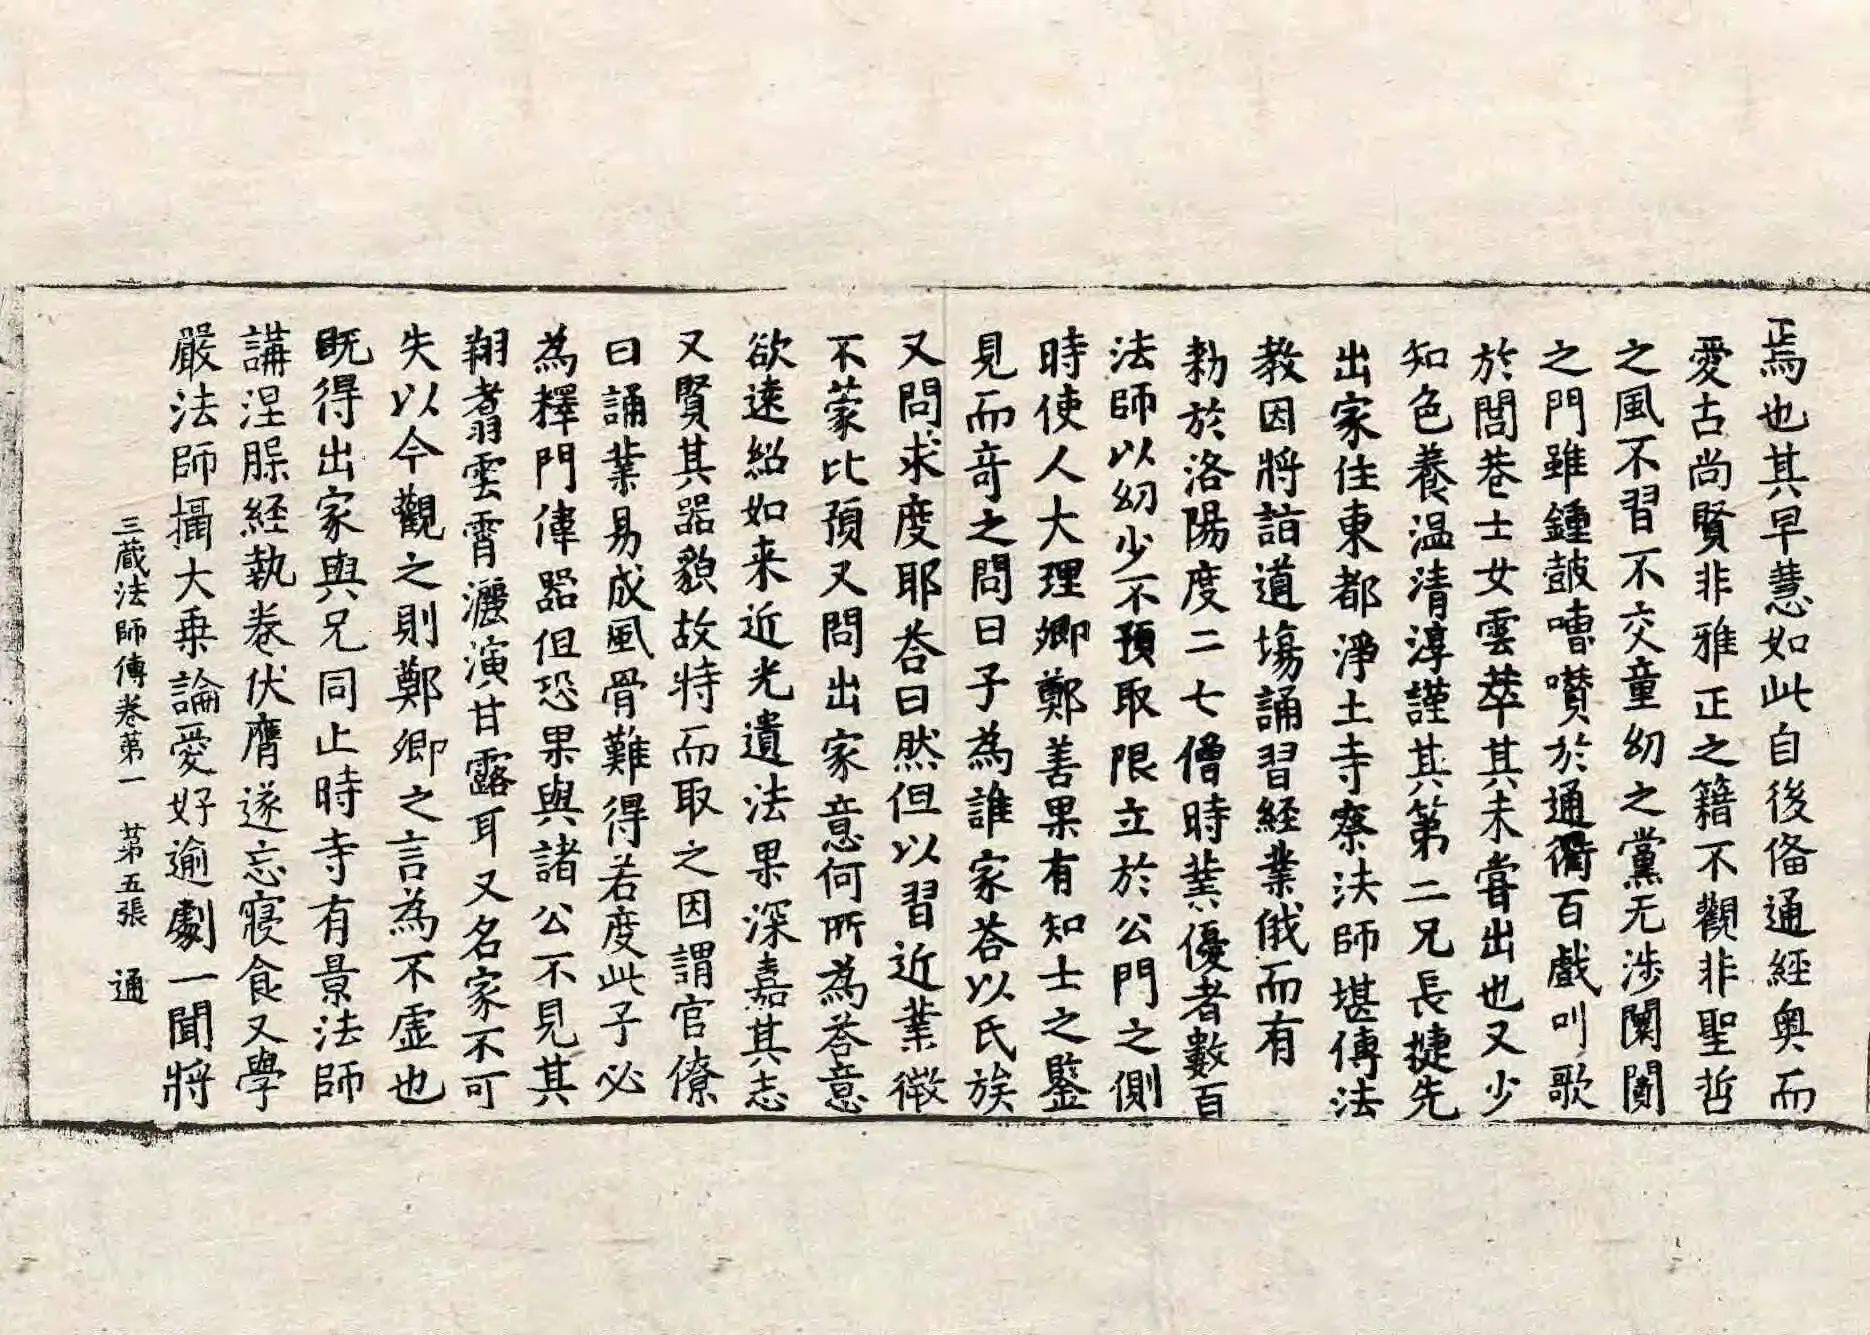 焉也其早慧如此自後俻通經奥而
愛古尚賢非雅正之籍不觀非聖哲
之風不習不交童幼之黨无涉闠闤
之門雖鍾皷嘈囋於通衢百戲叫歌
於閭巷士女雲萃其未嘗出也又少
知色養温清淳謹其第二兄長捷先
出家住東都淨土寺察法師堪傳法
教因將詣道塲誦習經業俄而有
勑於洛陽度二七僧時業優者數百
法師以幼少不預取限立於公門之側
時使人大理卿鄭善果有知士之鑒
見而竒之問曰子為誰家荅以氏族
又問求度耶荅曰然但以習近業微
不蒙比預又問出家意何所為荅意
欲逺紹如来近光遺法果深嘉其志
又賢其器貌故特而取之因謂官僚
曰誦業易成風骨難得若度此子必
為釋門偉器但恐果與諸公不見其
翔翥雲霄灑演甘露耳又名家不可
失以今觀之則鄭卿之言為不虛也
既得出家與兄同止時寺有景法師
講涅槃經執卷伏膺遂忘寢食又學
嚴法師攝大乗論愛好逾劇一聞將
三藏法師傳卷苐一 苐五張 通